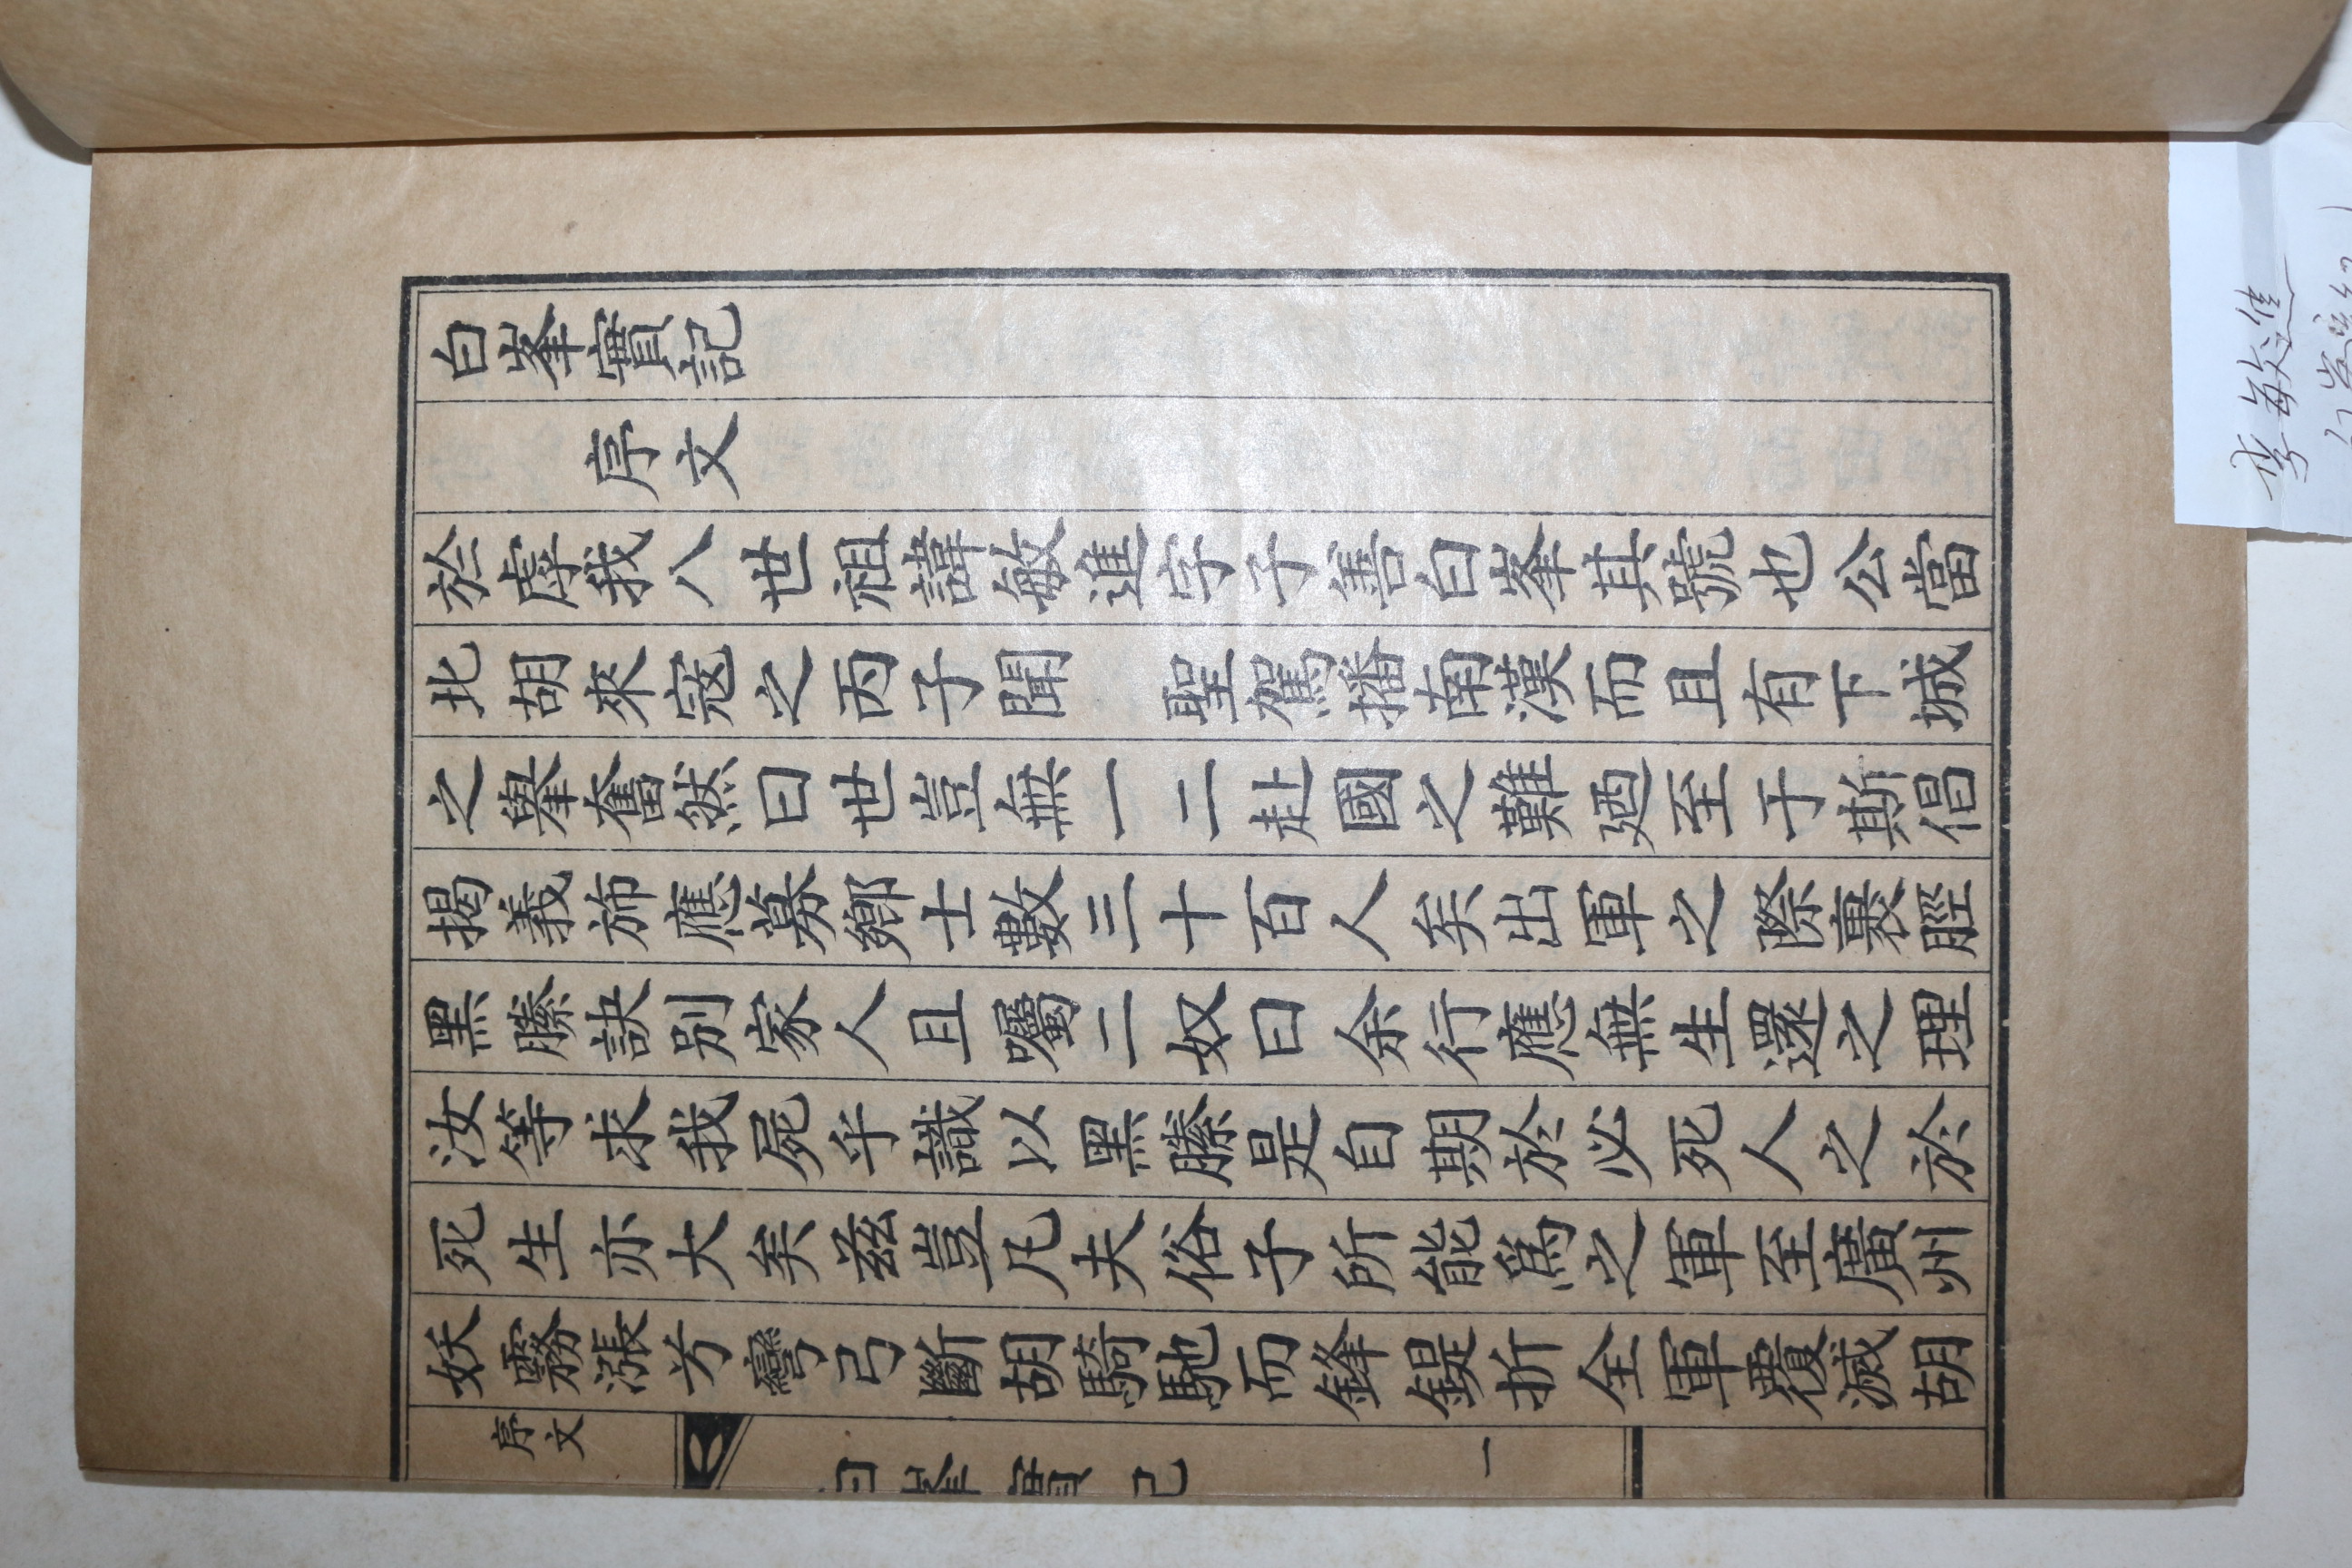 白峯實記
序文
於虖我八世祖諱敏進字子善白峯其號也公當
北胡來寇之丙子聞 聖駕播南漢而且有下城
之擧奮然曰世豈無一二赴國之難廼至于斯倡
揭義斾應募鄉士數三十百人矣出軍之際裹脛
黑縢訣別家人且囑二奴曰余行應無生還之理
汝等求我屍乎識以黑縢是自期於必死人之於
死生亦大矣兹豈凡夫俗子所能爲之軍至廣州
妖霧漲芳彎弓斷胡騎馳而鋒鍉折全軍覆滅胡
序文
白峯實記
一
李敏進